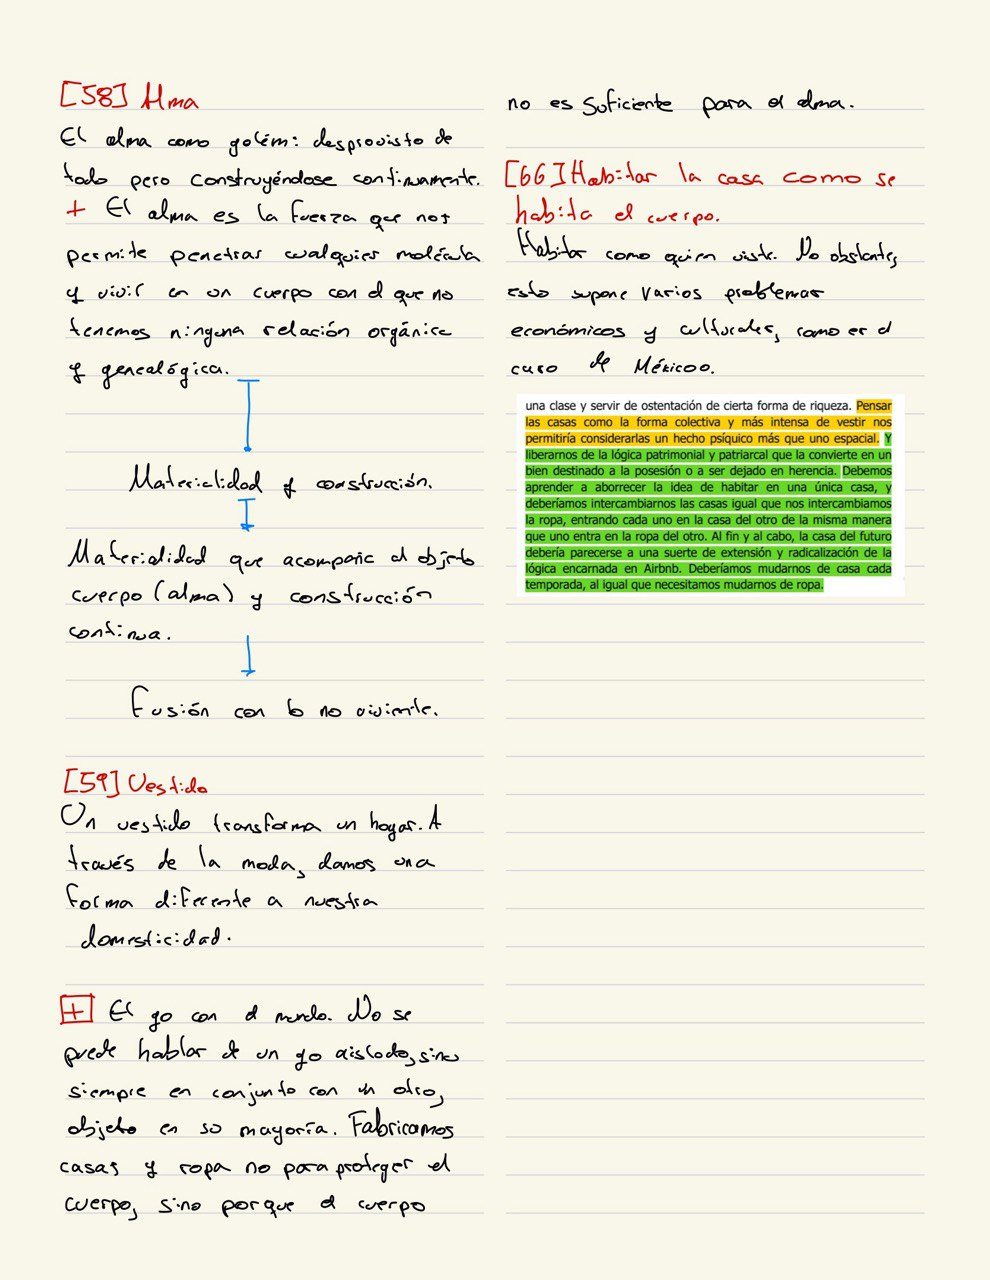 [58] Alma
El alma como golém: desprovisto de
todo pero construyéndose continuamente.
+ El alma es la fuerza que nos
permite penetrar cualquier molécula
y vivir en un cuerpo con el que no
tenemos ninguna relación orgánica
y genealógica.
Materialidad y construcción.
Materialidad que acompaña al objeto
cuerpo (alma) y construcción
continua.
Fusión con lo no viviente.
[59] Vestido
Un vestido transforma un hogar. A
través de la moda, damos una
forma diferente a nuestra
domesticidad.
+ El yo con el mundo. No se
puede hablar de un yo aislado, sino
siempre en conjunto con un otro,
objeto en su mayoría. Fabricamos
casas y ropa no para proteger el
cuerpo, sino porque el cuerpo
no es suficiente para el alma.
[66] Habitar la casa como se
habita el cuerpo.
Habitar como quien viste. No obstante,
esto supone varios problemas
económicos y culturales, como es el
caso de Méxicoo.
una clase y servir de ostentación de cierta forma de riqueza. Pensar
las casas como la forma colectiva y más intensa de vestir nos
permitiría considerarlas un hecho psíquico más que uno espacial. Y
liberarnos de la lógica patrimonial y patriarcal que la convierte en un
bien destinado a la posesión o a ser dejado en herencia. Debemos
aprender a aborrecer la idea de habitar en una única casa, y
deberíamos intercambiarnos las casas igual que nos intercambiamos
la ropa, entrando cada uno en la casa del otro de la misma manera
que uno entra en la ropa del otro. Al fin y al cabo, la casa del futuro
debería parecerse a una suerte de extensión y radicalización de la
lógica encarnada en Airbnb. Deberíamos mudarnos de casa cada
temporada, al igual que necesitamos mudarnos de ropa.